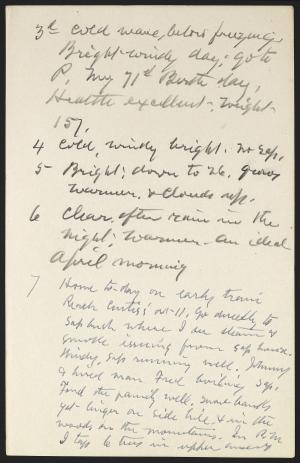 3d cold wave, below freezing
Bright windy day, go to
P. My 71st Birth day,
Health excellent; weight
157.
4 Cold, windy bright. no sap,
5 Bright; down to 26, grows
warmer, & clouds up.
6 Clear, after rain in the
night; warmer. an ideal
April morning
7 Home to-day on early train
Reach Curtis's at 11, go directly to
Sap bush where I see steam &
smoke issuing from sap house.
Windy, sap running well. Johnny
& hired man Fred boiling sap.
Find the family well. Snow banks
yet linger on side hills & in the
woods on the mountains. In P.M.
I tap 6 trees in upper